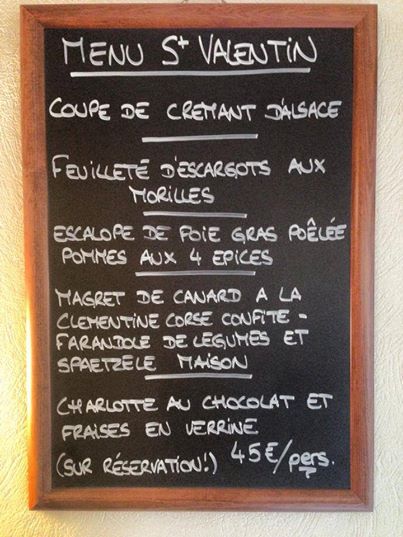 MENU St VALENTIN
COUPE DE CREMANT D'ALSACE
FEUILLETÉ D'ESCARGOTS AUX
MORILLES
ESCALOPE DE FOIE GRAS POÊLÉE
POMMES AUX 4 EPICES
MAGRET DE CANARD A LA
CLEMENTINE CORSE CONFITE -
FARANDOLE DE LEGUMES ET
SPAETZELE MAISON
CHARLOTTE AU CHOCOLAT ET
FRAISES EN VERRINE
(SUR RÉSERVATION!) 45€/pers.